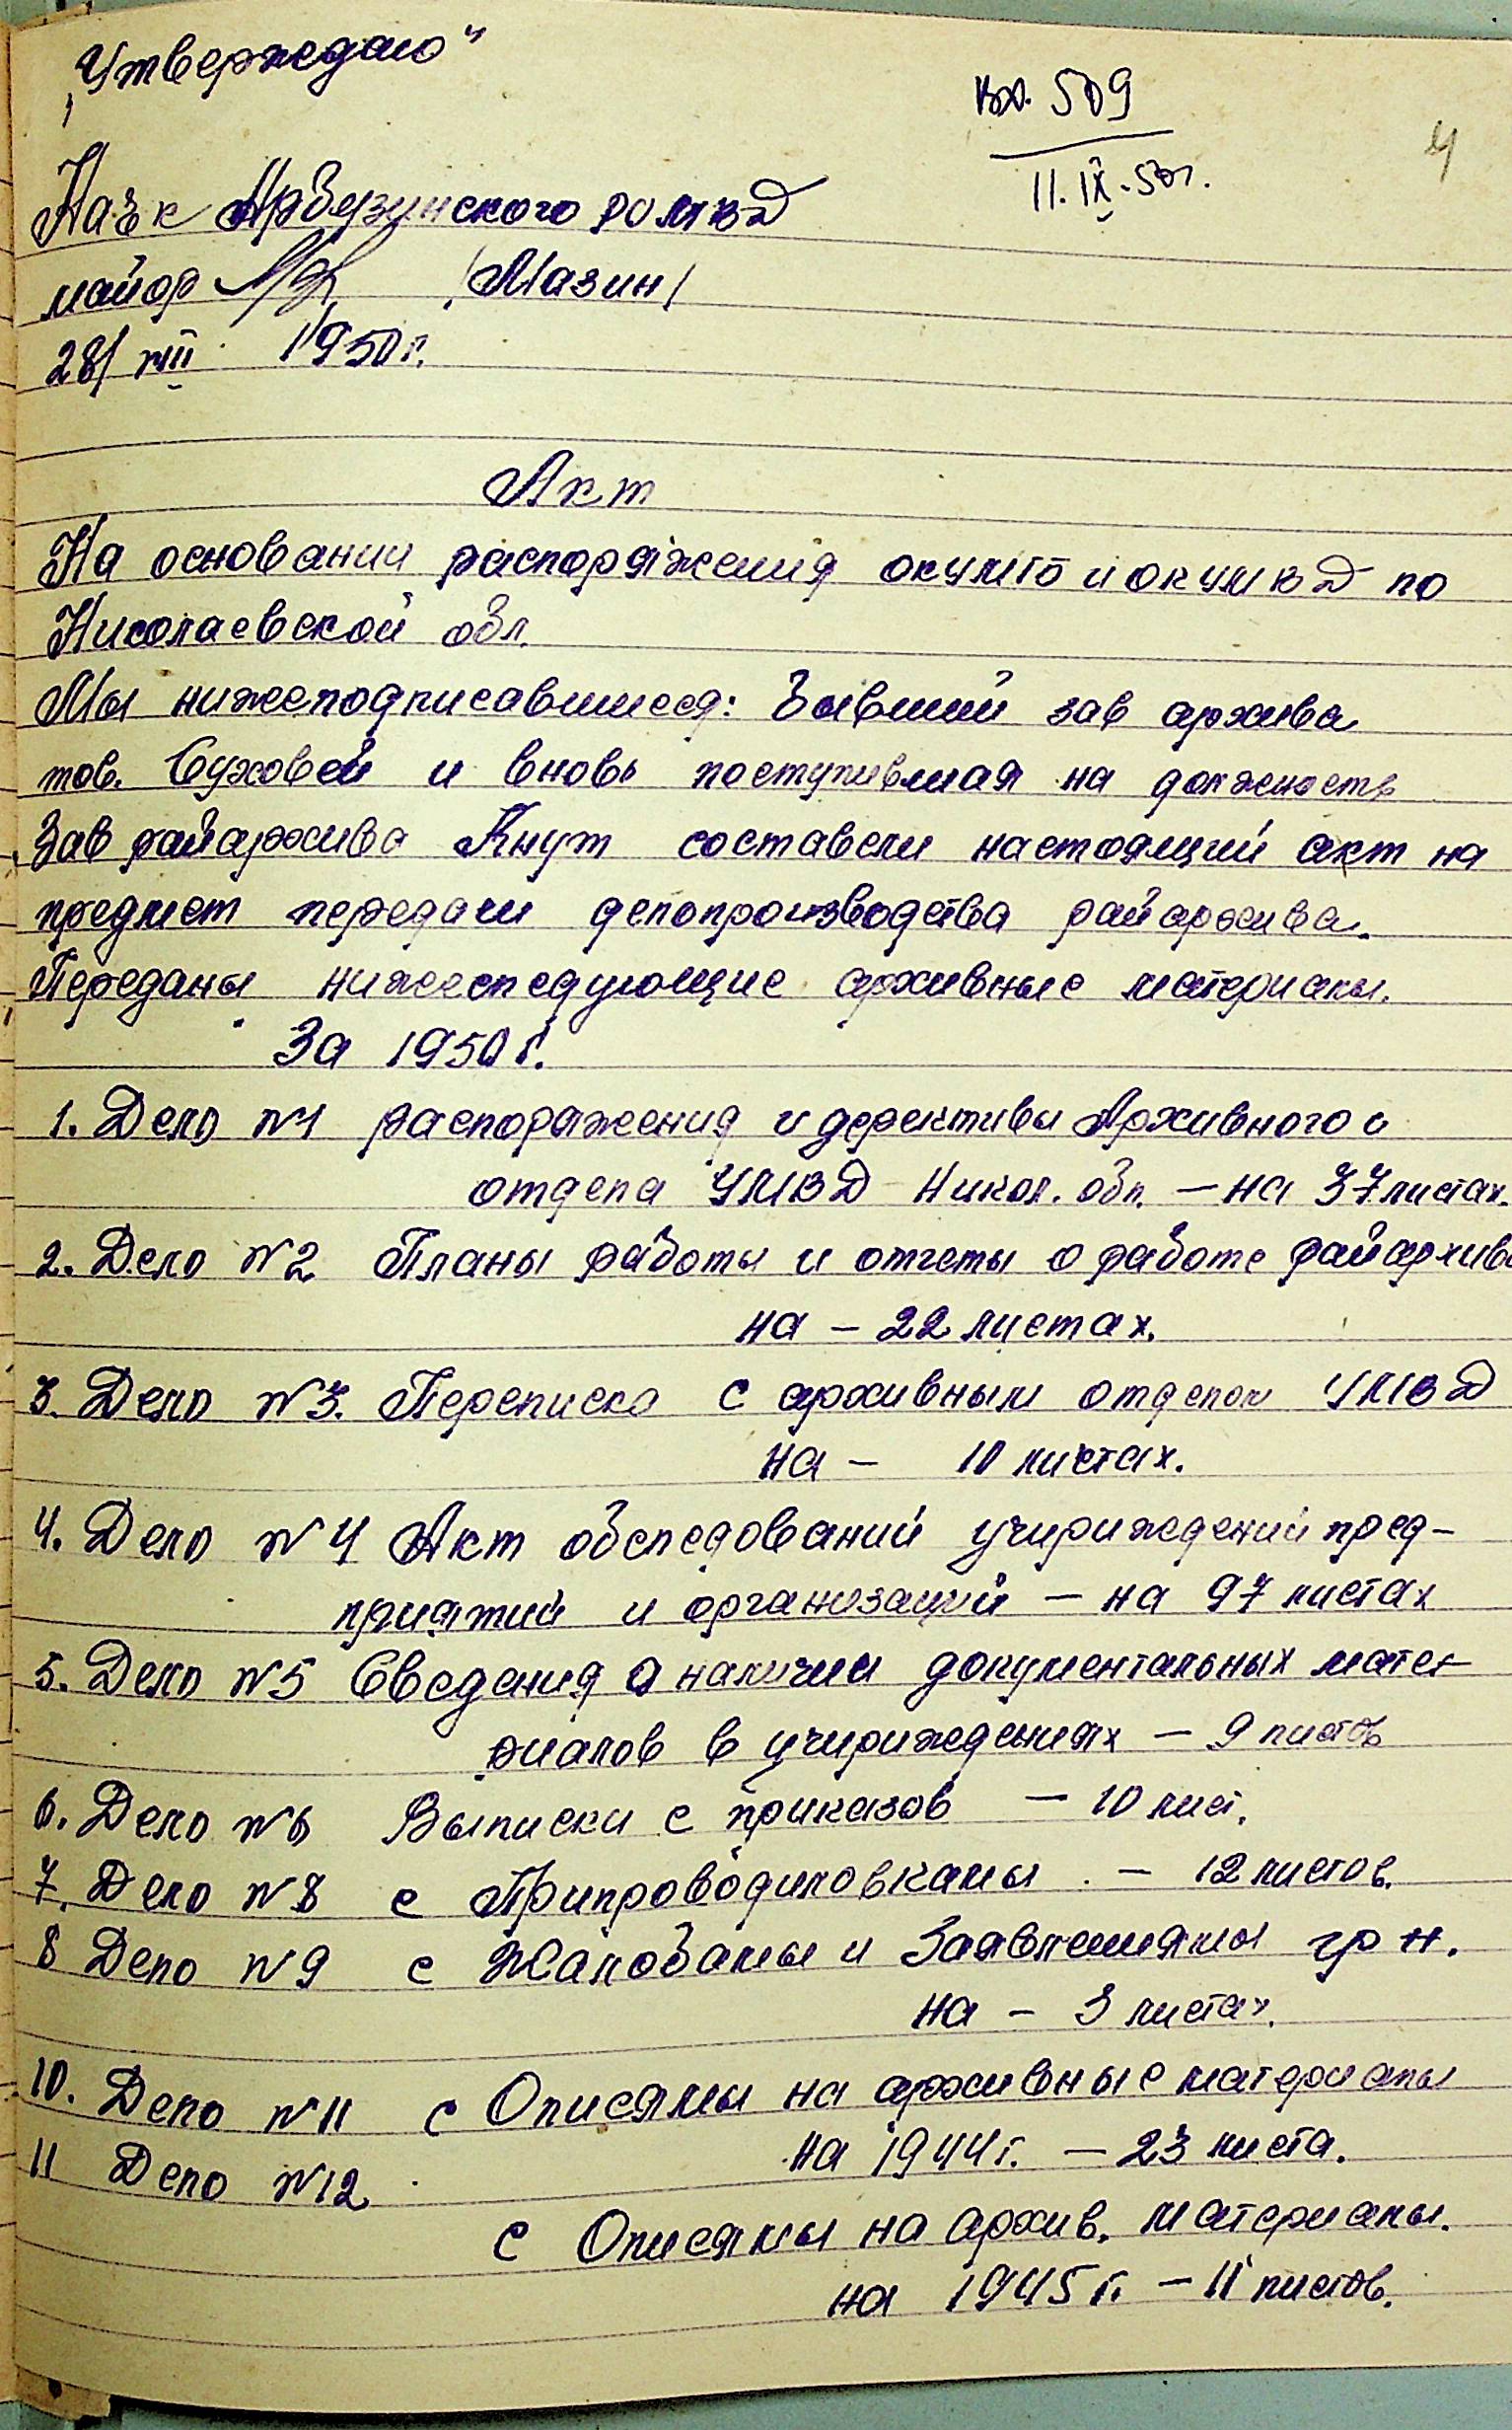 „Утверждаю"
вх. 509
11.IX.50г.
4
Нач-к Арбузинского РОМВД
майор /Мазин/
28/VIII 1950г.
Акт
На основании распоряжения окумгб и окумвд по
Николаевской обл.
Мы нижеподписавшиеся: бывший зав архива
тов. Суховей и вновь поступившая на должность
Зав райархива Кнут составели настоящий акт на
предмет передачи делопроизводства райархива.
Переданы нижеследующие архивные материалы.
За 1950 г.
1. Дело №1 распоряжения и дерективы Архивного о
отдела УМВД Никол. обл. — на 37 листах.
2. Дело №2 Планы работы и отчеты о работе райархива
на — 22 листах.
3. Дело №3. Переписка с архивным отделом УМВД
на — 10 листах.
4. Дело №4 Акт обследований учириждений пред-
приятий и организаций — на 97 листах
5. Дело №5 Сведения о наличии документальных мате-
риалов в учириждениях — 9 листов
6. Дело №6 Выписки с приказов — 10 лист.
7. Дело №8 с Припроводиловкамы — 12 листов.
8 Дело №9 с Жалобамы и Заявлениямы гр н.
на — 3 листах.
10. Дело №11 с Описямы на архивные материалы
на 1944 г. — 23 листа.
11 Дело №12
с Описямы на архив. материалы.
на 1945 г. — 11 листов.